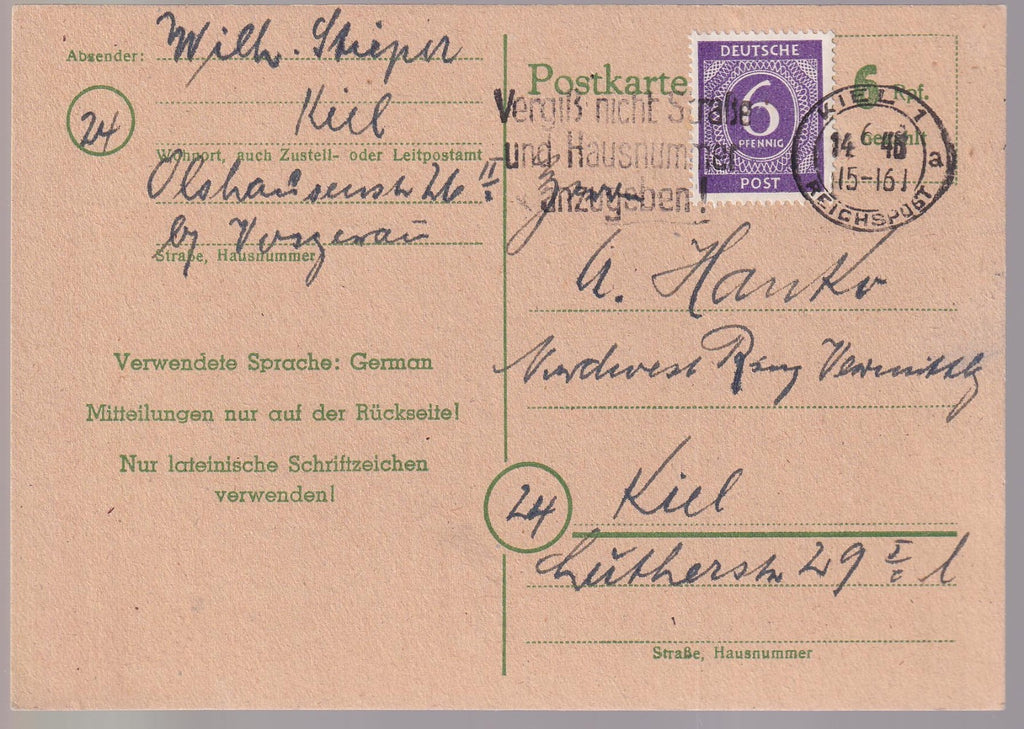 Absender: Wilh. Stieper
24
Kiel
Wohnort, auch Zustell- oder Leitpostamt
Olshausenstr 26 II
by Vosgerau
Straße, Hausnummer
Verwendete Sprache: German
Mitteilungen nur auf der Rückseite!
Nur lateinische Schriftzeichen
verwenden!
Postkarte
6 Rpf.
DEUTSCHE
6
PFENNIG
POST
Vergiß nicht Straße
und Hausnummer
anzugeben!
KIEL 1
14. 46
15-16
a
REICHSPOST
A. Hanko
Nordwest Rang Vermittlg
24
Kiel
Lutherstr 29 I l
Straße, Hausnummer